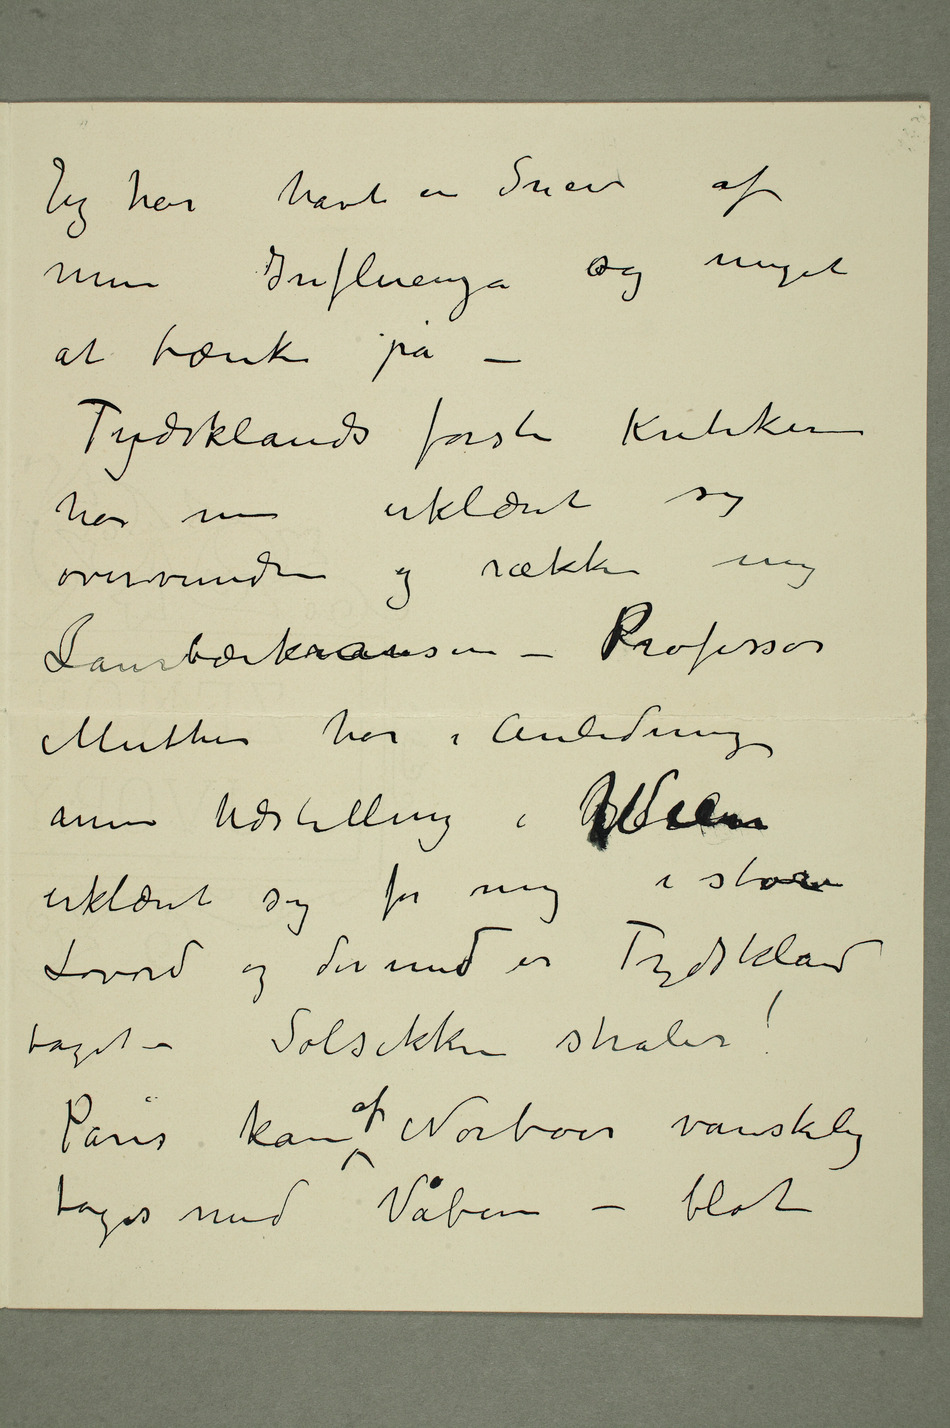 Jeg har havt en Snev af
min Influenza og meget
at tænke på –
Tydsklands første Kritiker
har nu erklæret sig
overvunden og rækker mig
Laurbærkransen – Professor
Muther har i Anledning
min Udstilling i Wien
erklæret sig for mig i store
Lovord og dermed er Tydskland
taget – Solsikken stråler!
Paris kan af Norboer vanskelig
tages med Våben – blot